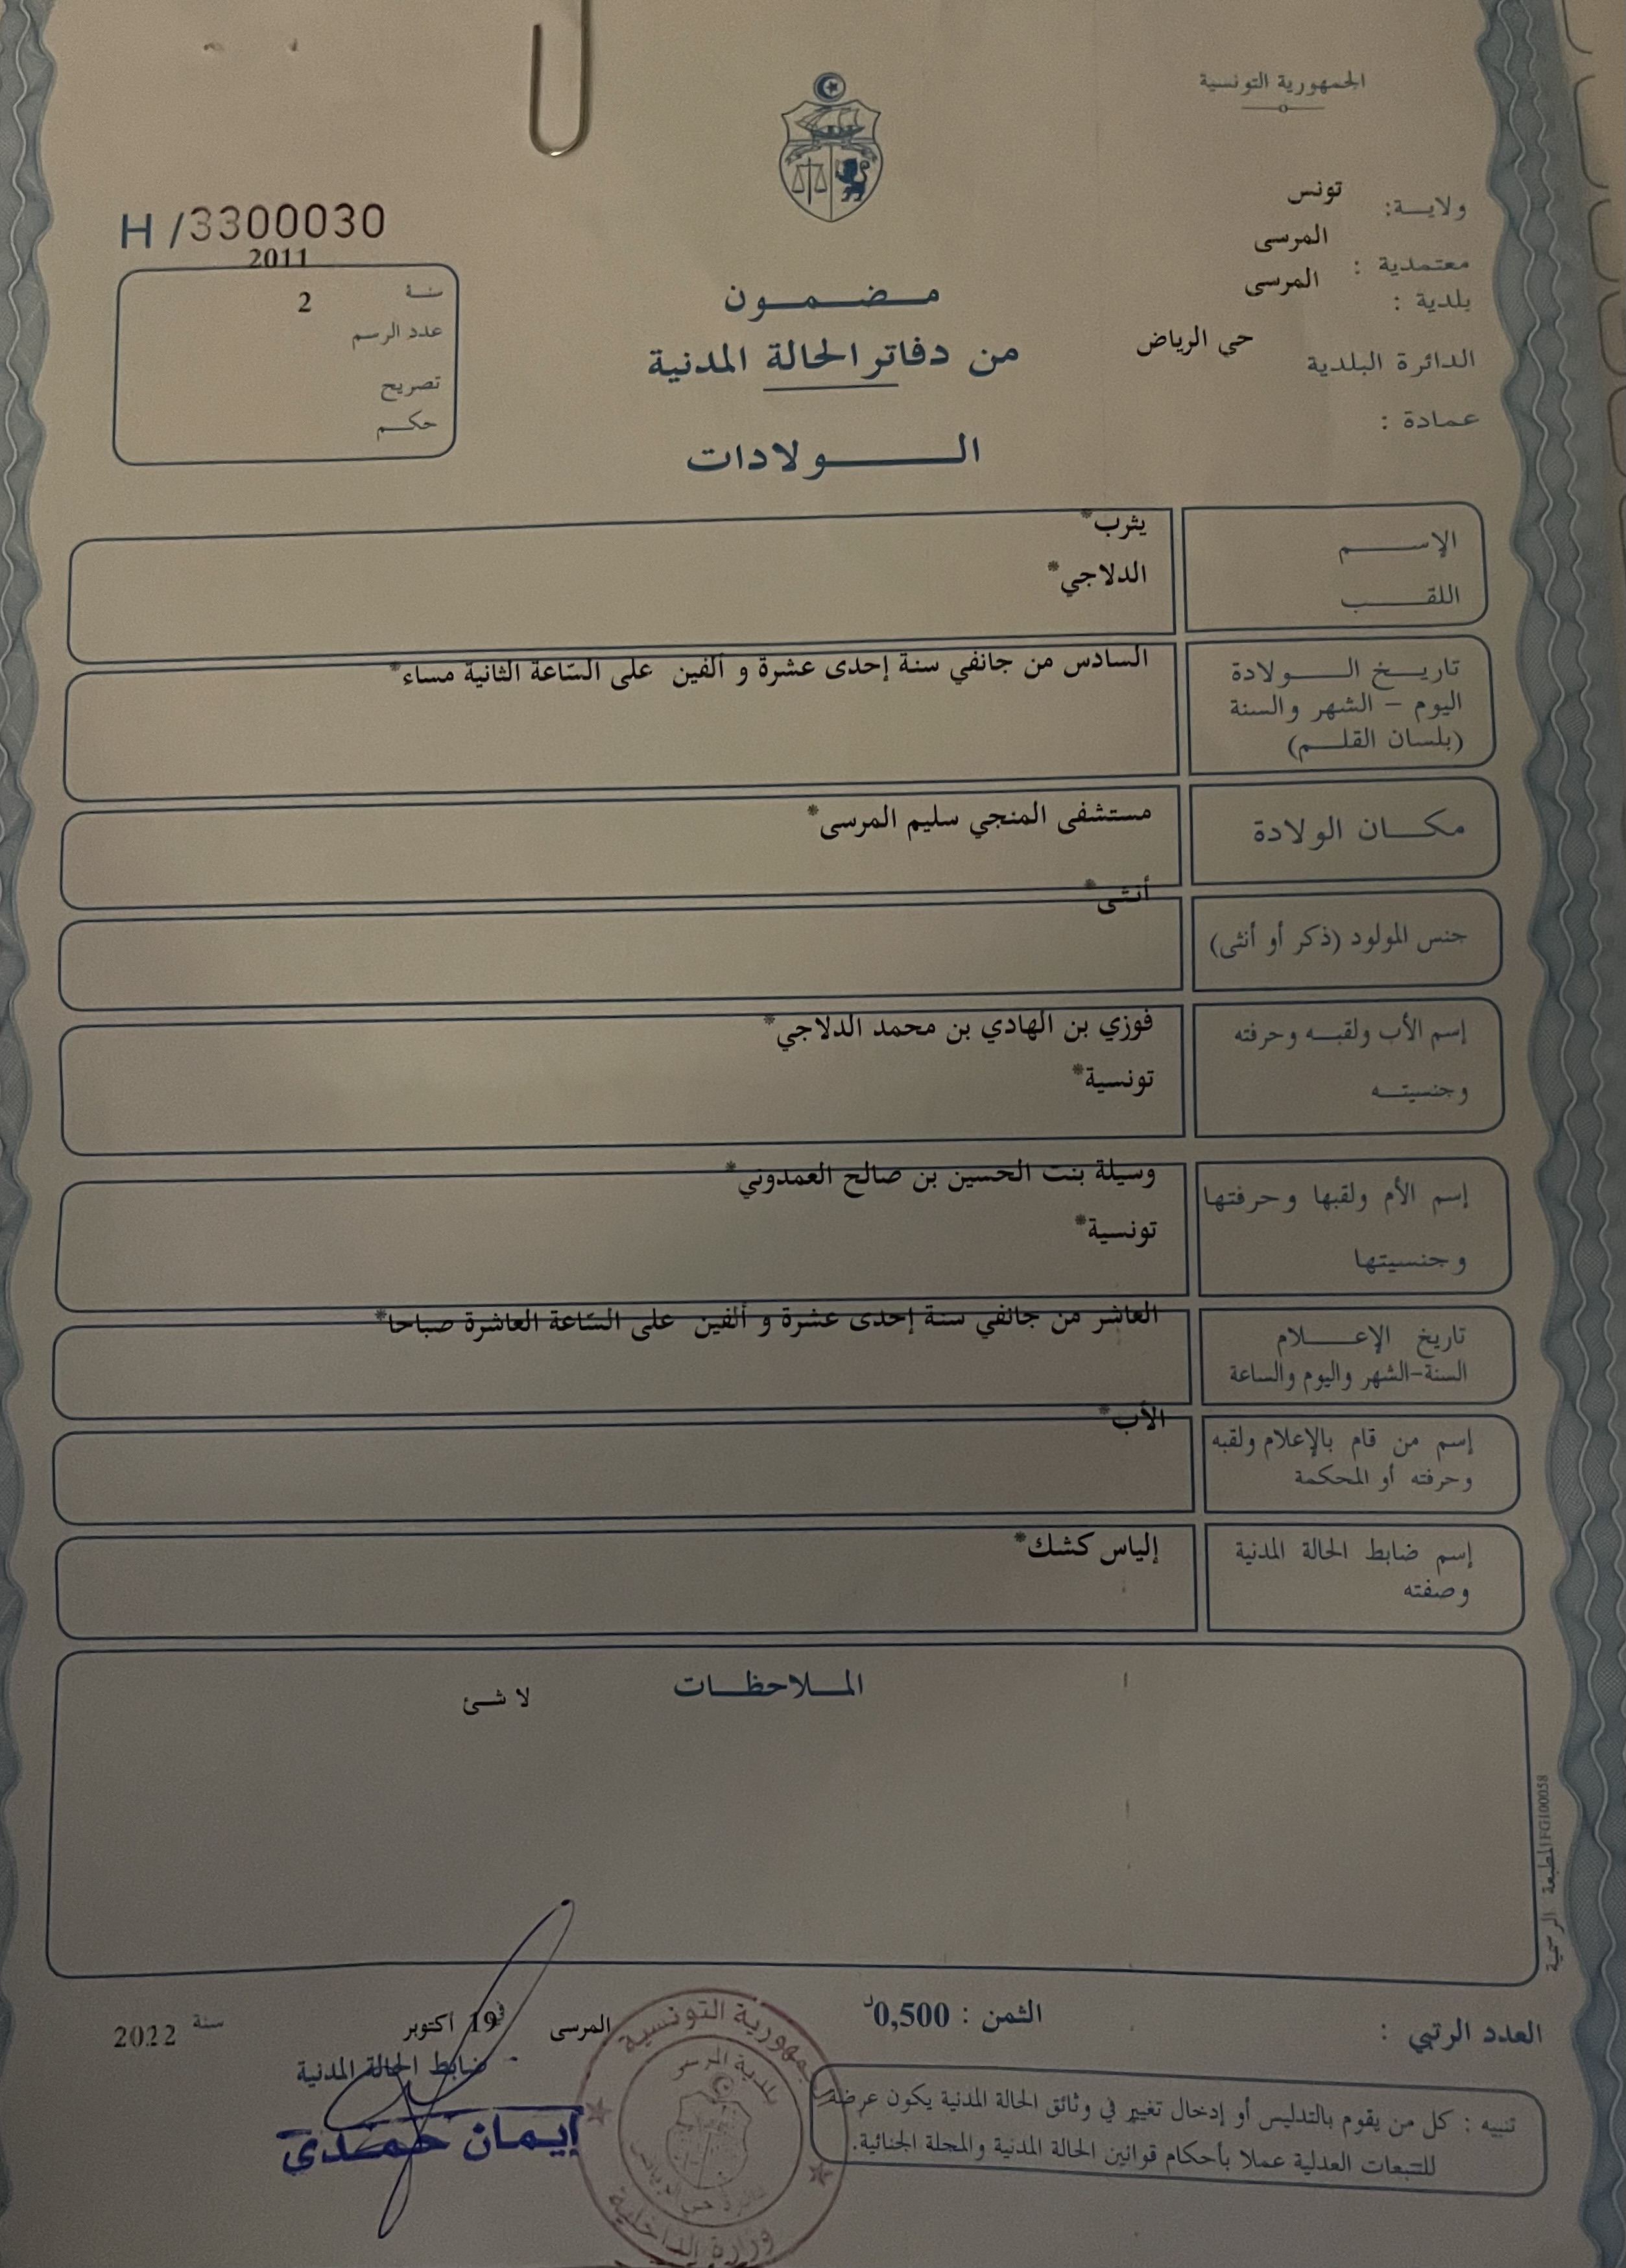 الجمهورية التونسية
ولاية: تونس
معتمدية : المرسى
بلدية : المرسى
الدائرة البلدية حي الرياض
عمادة :
H /3300030
2011
سنة
2
عدد الرسم
تصريح
حكم
مضمون
من دفاتر الحالة المدنية
الولادات
الإسم يثرب*
اللقب الدلاجي*
تاريخ الولادة السادس من جانفي سنة إحدى عشرة و ألفين على السّاعة الثانية مساء*
اليوم – الشهر والسنة
(بلسان القلم)
مكان الولادة مستشفى المنجي سليم المرسى*
أنثى*
جنس المولود (ذكر أو أنثى)
إسم الأب ولقبه وحرفته فوزي بن الهادي بن محمد الدلاجي*
وجنسيته تونسية*
إسم الأم ولقبها وحرفتها وسيلة بنت الحسين بن صالح العمدوني*
وجنسيتها تونسية*
تاريخ الإعلام العاشر من جانفي سنة إحدى عشرة و ألفين على السّاعة العاشرة صباحا*
السنة-الشهر واليوم والساعة
إسم من قام بالإعلام ولقبه الأب*
وحرفته أو المحكمة
إسم ضابط الحالة المدنية إلياس كشك*
وصفته
الملاحظات لا شئ
المطبعة الرسمية IFG100058
العدد الرتبي :
الثمن : 0,500د
المرسى في 19 أكتوبر سنة 2022
ضابط الحالة المدنية
إيمان حمدي
تنبيه : كل من يقوم بالتدليس أو إدخال تغيير في وثائق الحالة المدنية يكون عرضة
للتتبعات العدلية عملا بأحكام قوانين الحالة المدنية والمجلة الجنائية.
الجمهورية التونسية
بلدية المرسى
دائرة حي الرياض
وزارة الداخلية